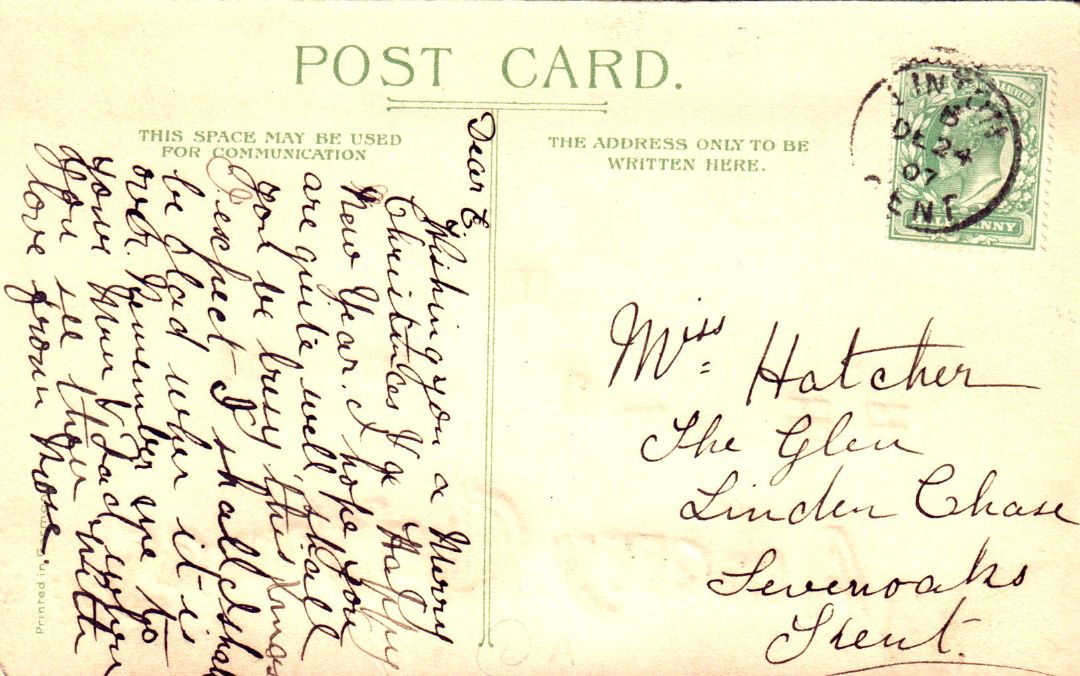 POST CARD.
THIS SPACE MAY BE USED
FOR COMMUNICATION
THE ADDRESS ONLY TO BE
WRITTEN HERE.
DE 24
07
Dear E.
Wishing you a Merry
Christmas & a Happy
New Year. I hope you
are quite well, shall
you be busy this Xmas
I expect I shall I shall
be glad when it is
over. Remember me to
your Mum & Dad when
you see them with
love from Rose.
Miss Hatcher
The Glen
Linden Chase
Sevenoaks
Kent.
Printed in